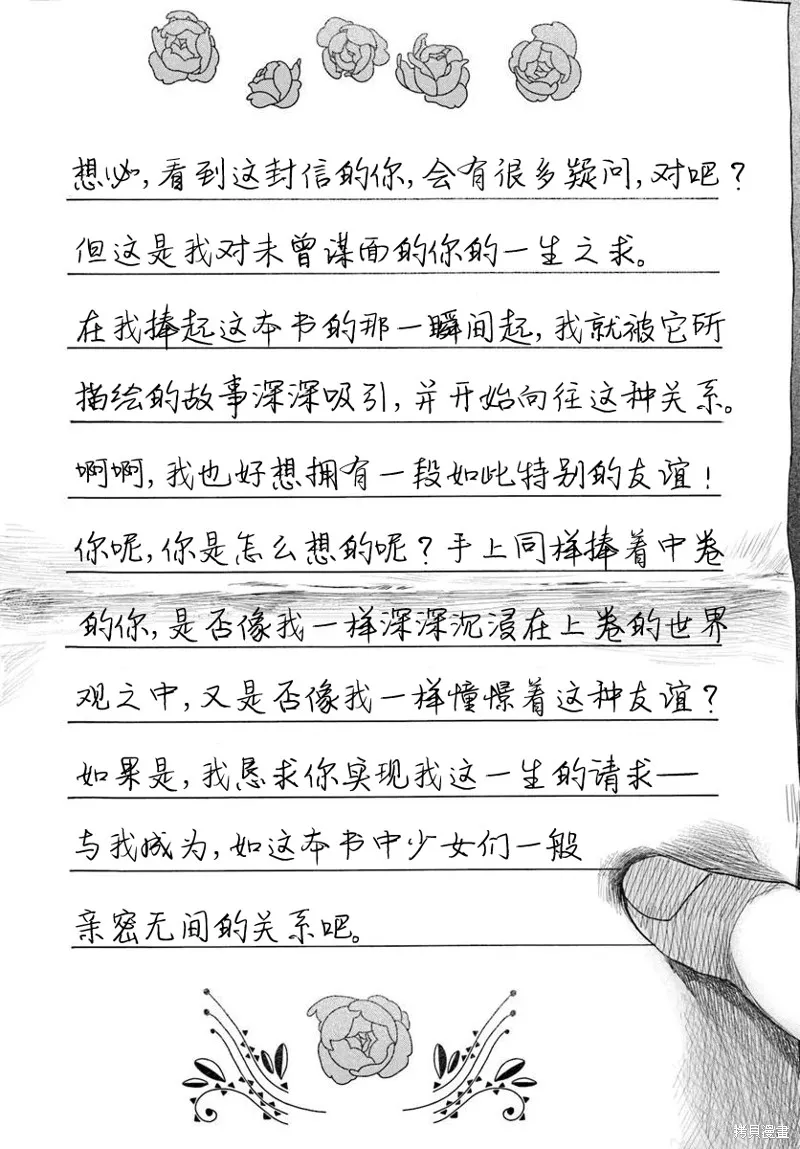 想必,看到这封信的你,会有很多疑问,对吧?
但这是我对未曾谋面的你的一生之求。
在我捧起这本书的那一瞬间起,我就被它所
描绘的故事深深吸引,并开始向往这种关系。
啊啊,我也好想拥有一段如此特别的友谊!
你呢,你是怎么想的呢?手上同样捧着中卷
的你,是否像我一样深深沉浸在上卷的世界
观之中,又是否像我一样憧憬着这种友谊?
如果是,我恳求你实现我这一生的请求——
与我成为,如这本书中少女们一般
亲密无间的关系吧。
拷貝漫畫